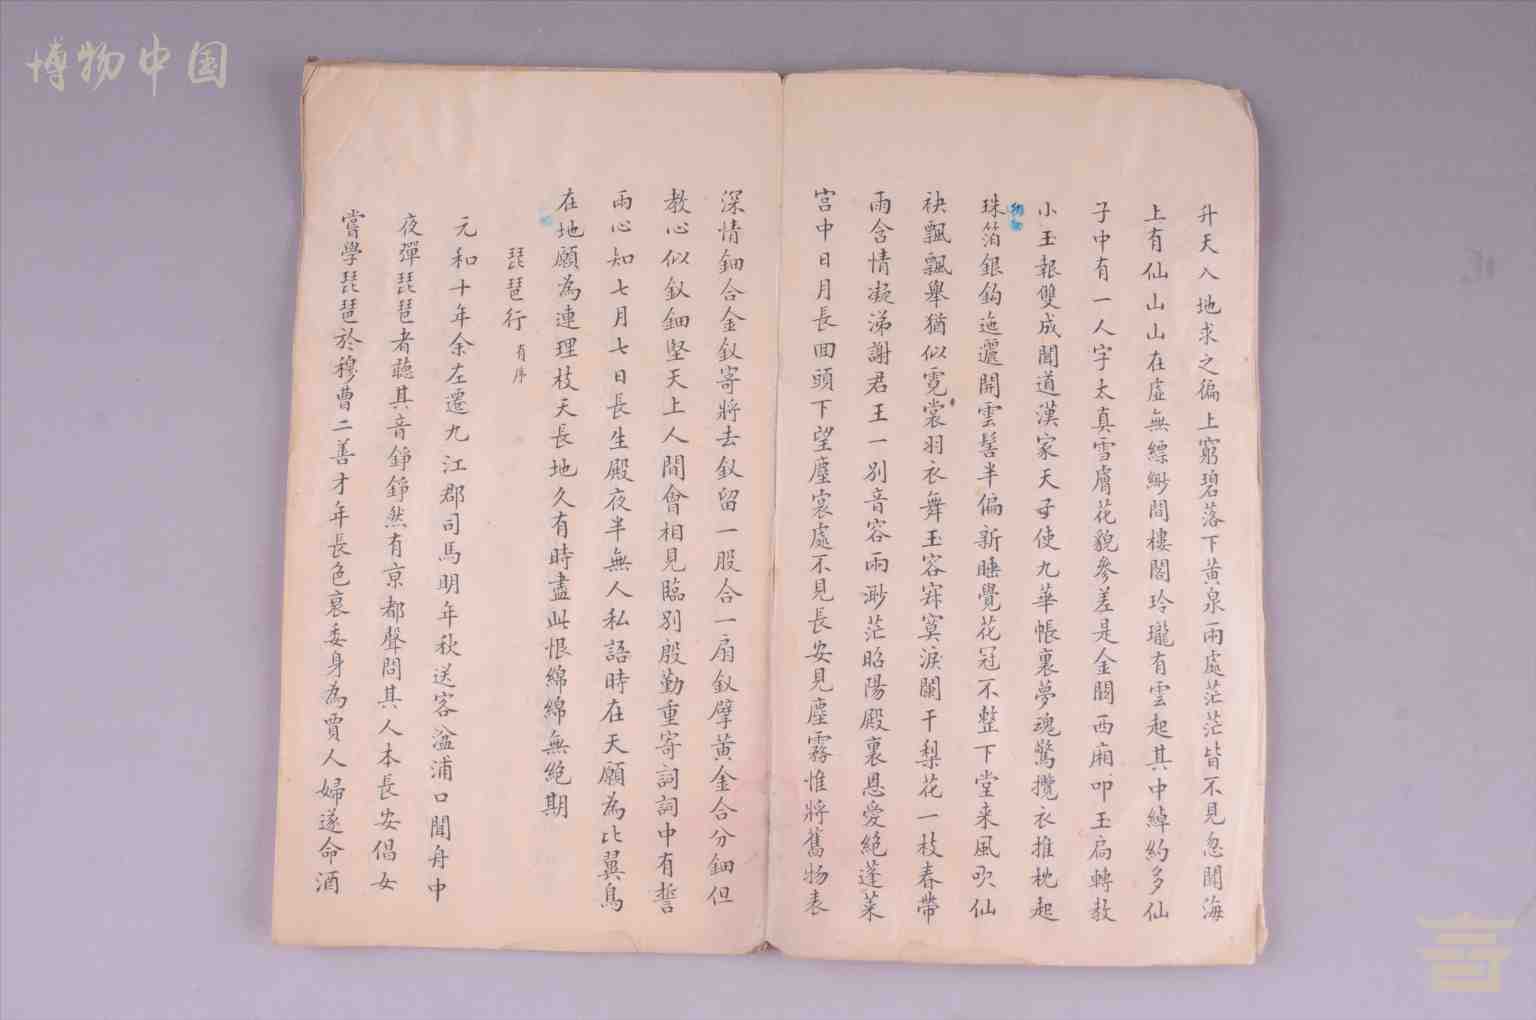 博物中国
升天入地求之徧上窮碧落下黃泉兩處茫茫皆不見忽聞海
上有仙山山在虛無縹緲間樓閣玲瓏有雲起其中綽約多仙
子中有一人字太真雪膚花貌參差是金闕西廂叩玉扃轉教
小玉報雙成聞道漢家天子使九華帳裏夢魂驚攬衣推枕起
珠箔銀鈎迤邐開雲髻半偏新睡覺花冠不整下堂来風吹仙
袂飄飄舉猶似霓裳羽衣舞玉容寂寞淚闌干梨花一枝春帶
雨含情凝涕謝君王一別音容兩渺茫昭陽殿裏恩愛絕蓬萊
宮中日月長回頭下望塵寰處不見長安見塵霧惟將舊物表
深情鈿合金釵寄將去釵留一股合一扇釵擘黃金合分鈿但
教心似釵鈿堅天上人間會相見臨別殷勤重寄詞詞中有誓
兩心知七月七日長生殿夜半無人私語時在天願為比翼鳥
在地願為連理枝天長地久有時盡此恨綿綿無絕期
琵琶行 有序
元和十年余左遷九江郡司馬明年秋送客湓浦口聞舟中
夜彈琵琶者聽其音錚錚然有京都聲問其人本長安倡女
嘗學琵琶於穆曹二善才年長色衰委身為賈人婦遂命酒